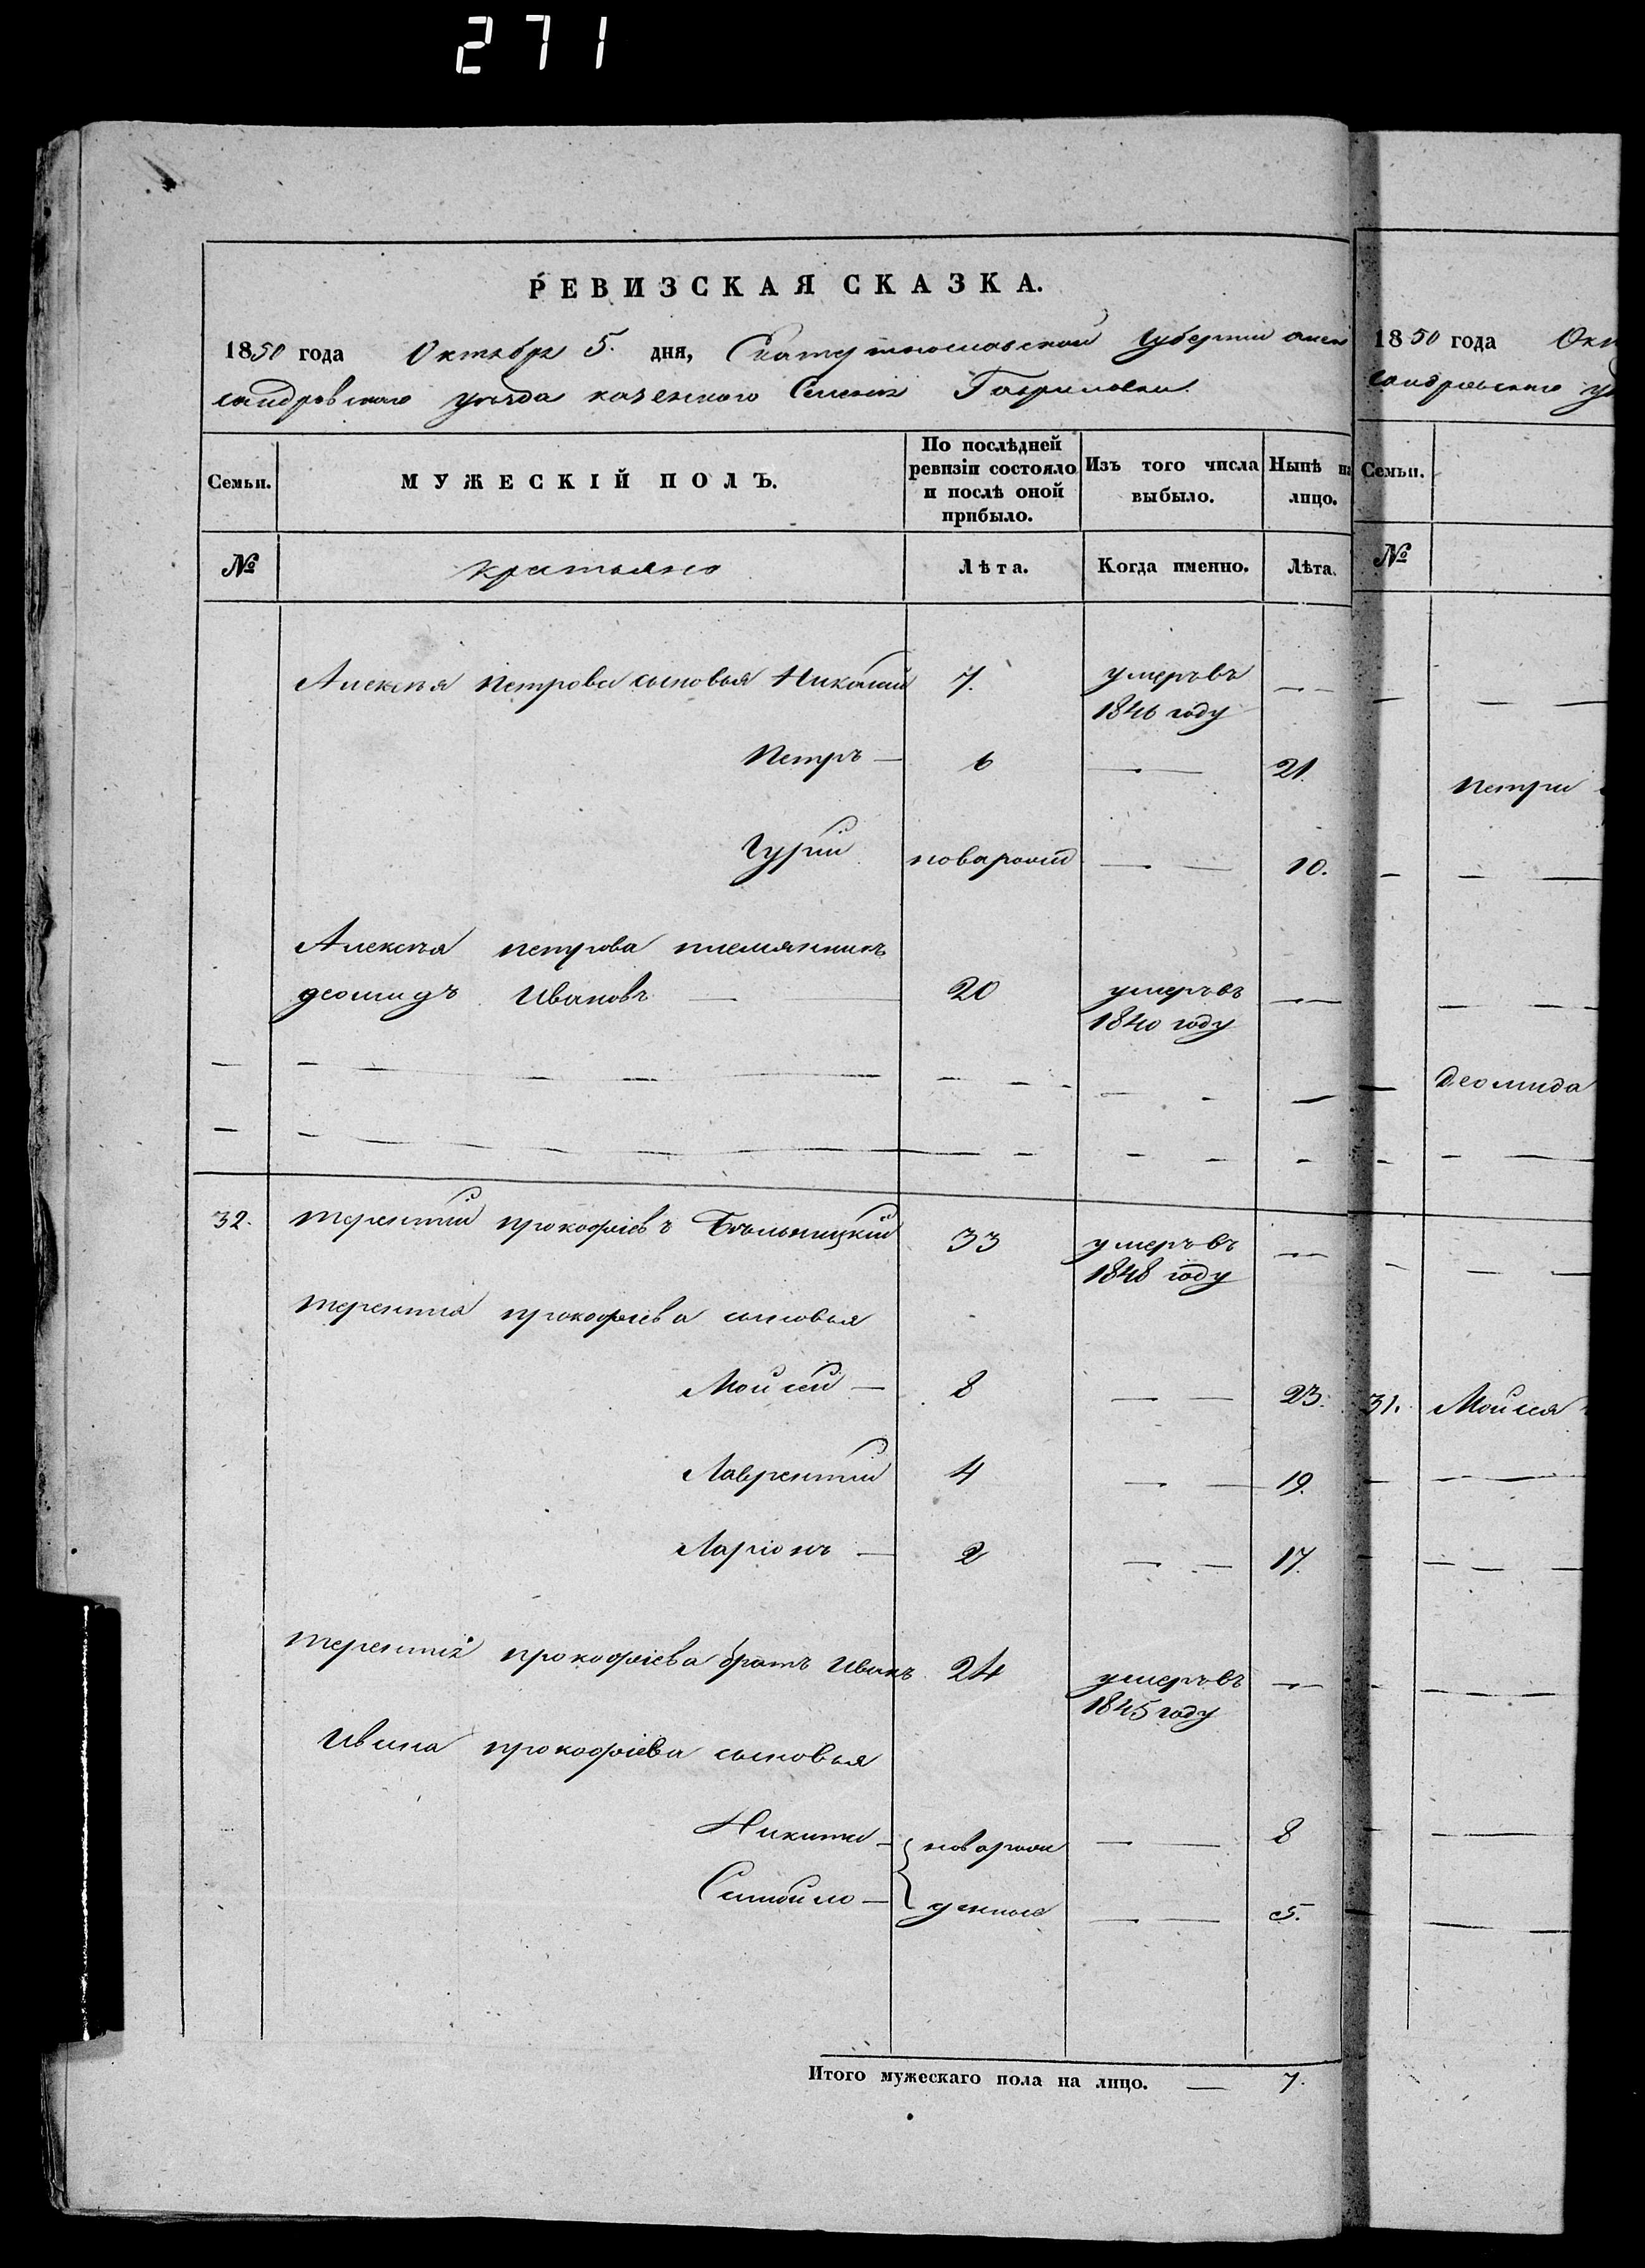 271
РЕВИЗСКАЯ СКАЗКА.
1850 года Октября 5. дня, Екатеринославской Губернии Алек
сандровского уѣзда казенного Селенія Гавриловки
Семьи.
МУЖЕСКІЙ ПОЛЪ.
По послѣдней ревизіи состояло и послѣ оной прибыло.
Изъ того числа выбыло.
Нынѣ на лицо.
№
Крестьяно
Лѣта.
Когда именно.
Лѣта.
Алексѣя Петрова сыновья Николай 7. умеръ въ — —
1846 году
Петръ — 6 — — 21.
Гурій новорожд — — 10.
Алексѣя петрова племянникъ
деомидъ Ивановъ — — 20 умеръ въ — —
1840 году
32. терентій прокофіевъ Бѣльницкій 33 умеръ въ — —
1848 году
терентія прокофіева сыновья
Моисей — 8 — — 23.
Лаврентій 4 — — 19.
Ларіонъ — 2 — — 17.
терентія прокофіева братъ Иванъ 24 умеръ въ — —
1845 году
Ивана прокофіева сыновья
Никита — новорож — — 8
Самойло — денные — — 5.
Итого мужескаго пола на лицо. — 7.
1850 года Окт
сандровского уѣ
Семьи.
№
Петра
Деомида
31. Моисея